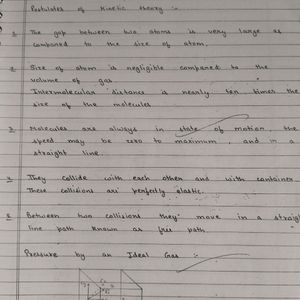 Postulates of Kinetic theory :-
1. The gap between two atoms is very large as
compared to the size of atom.
2. Size of atom is negligible compared to the
volume of gas.
Intermolecular distance is nearly ten times the
size of the molecules
3. Molecules are always in state of motion, the
speed may be zero to maximum, and in a
straight line.
4. They collide with each other and with container
These collisions are perfectly elastic.
5. Between two collisions they move in a straigh
line path known as free path
Pressure by an Ideal Gas :-